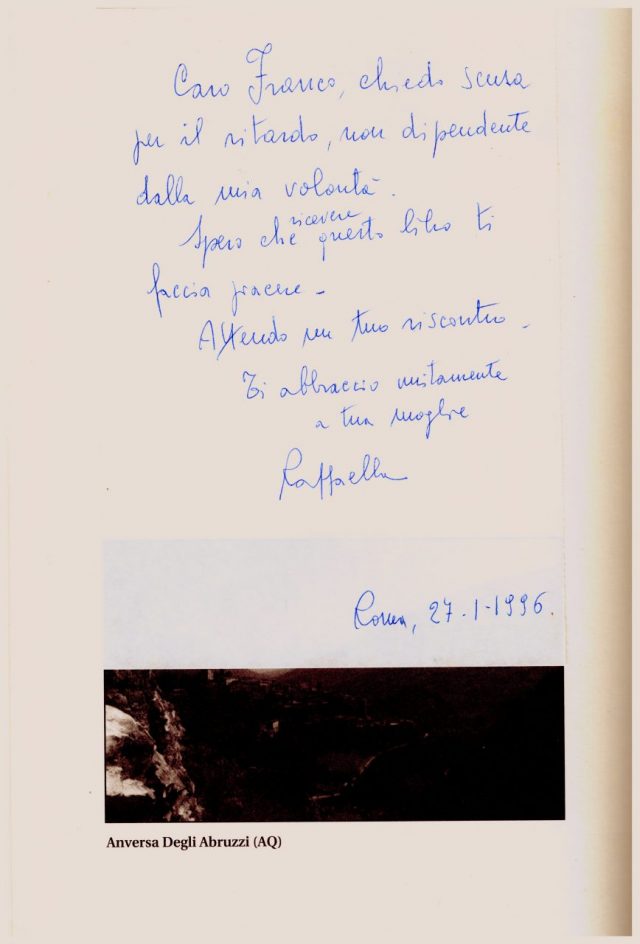 Caro Franco, chiedo scusa
per il ritardo, non dipendente
dalla mia volontà.
ricevere
Spero che questo libro ti
faccia piacere -
Attendo un tuo riscontro -
Ti abbraccio unitamente
a tua moglie
Raffaella
Roma, 27-1-1996.
Anversa Degli Abruzzi (AQ)